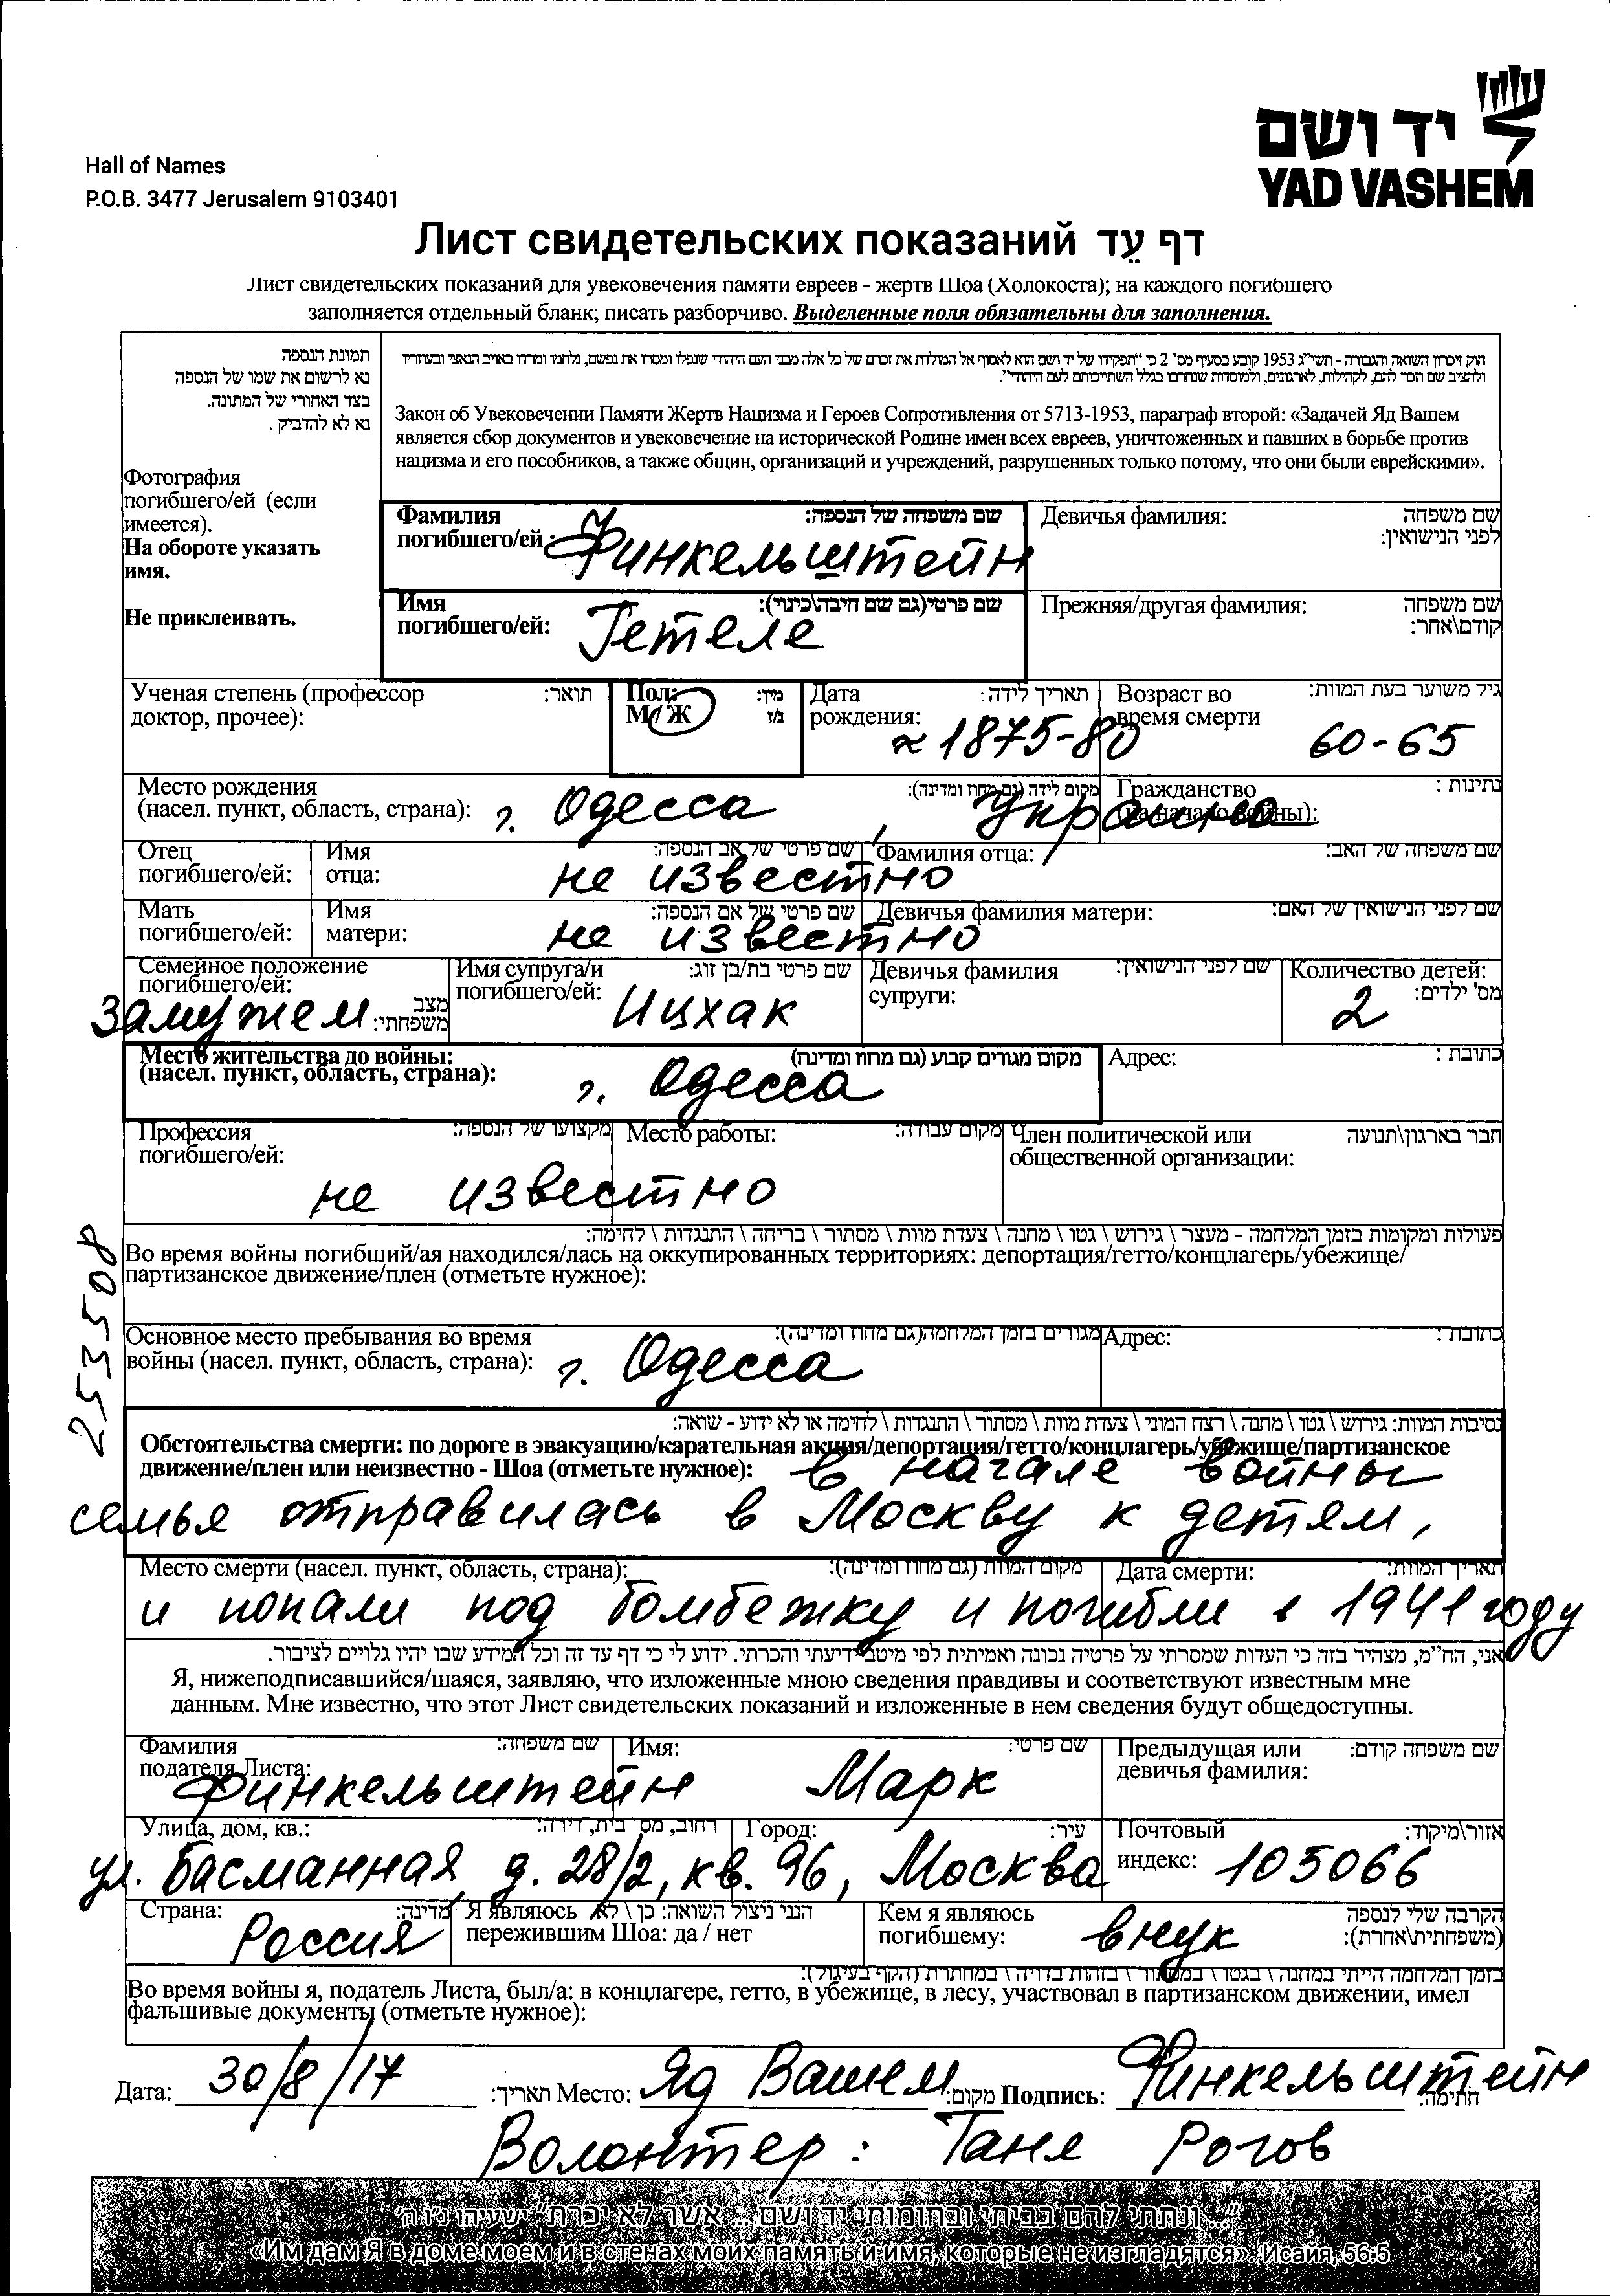 יד ושם
YAD VASHEM
Hall of Names
P.O.B. 3477 Jerusalem 9103401
Лист свидетельских показаний דף עֵד
Лист свидетельских показаний для увековечения памяти евреев - жертв Шоа (Холокоста); на каждого погибшего
заполняется отдельный бланк; писать разборчиво. Выделенные поля обязательны для заполнения.
תמונת הנספה
נא לרשום את שמו של הנספה
בצד האחורי של המתונה.
נא לא להדביק .
Фотография
погибшего/ей (если
имеется).
На обороте указать
имя.
Не приклеивать.
חוק זיכרון השואה והגבורה - תשי"ג 1953 קובע בסעיף מס' 2 כי "תפקידו של יד ושם הוא לאסוף אל המולדת את זכרם של כל אלה מבני העם היהודי שנפלו ומסרו את נפשם, נלחמו ומרדו באויב הנאצי ובעוזריו
ולהציב שם וזכר להם, לקהילות, לארגונים, ולמוסדות שנחרבו בגלל השתייכותם לעם היהודי".
Закон об Увековечении Памяти Жертв Нацизма и Героев Сопротивления от 5713-1953, параграф второй: «Задачей Яд Вашем
является сбор документов и увековечение на исторической Родине имен всех евреев, уничтоженных и павших в борьбе против
нацизма и его пособников, а также общин, организаций и учреждений, разрушенных только потому, что они были еврейскими».
Фамилия שם משפחה של הנספה:
погибшего/ей: Финкельштейн
Девичья фамилия: שם משפחה
לפני הנישואין:
Имя שם פרטי(גם שם חיבה\כינוי):
погибшего/ей: Гетеле
Прежняя/другая фамилия: שם משפחה
קודם\אחר:
Ученая степень (профессор תואר:
доктор, прочее):
Пол: מין:
М/Ж ז/נ
Дата תאריך לידה:
рождения: ≈ 1875-80
Возраст во גיל משוער בעת המוות:
время смерти 60-65
Место рождения מקום לידה (גם מחוז ומדינה):
(насел. пункт, область, страна): г. Одесса, Украина
Гражданство נתינות :
(на начало войны):
Отец Имя שם פרטי של אב הנספה: Фамилия отца: שם משפחה של האב:
погибшего/ей: отца: не известно
Мать Имя שם פרטי של אם הנספה: Девичья фамилия матери: שם לפני הנישואין של האם:
погибшего/ей: матери: не известно
Семейное положение
погибшего/ей: מצב
замужем משפחתי:
Имя супруга/и שם פרטי בת/בן זוג:
погибшего/ей: Ицхак
Девичья фамилия שם לפני הנישואין:
супруги:
Количество детей:
מס' ילדים: 2
Место жительства до войны: מקום מגורים קבוע (גם מחוז ומדינה)
(насел. пункт, область, страна): г. Одесса
Адрес: כתובת :
Профессия מקצועו של הנספה: Место работы: מקום עבודה: Член политической или חבר בארגון\תנועה
погибшего/ей: общественной организации:
не известно
פעולות ומקומות בזמן המלחמה - מעצר \ גירוש \ גטו \ מחנה \ צעדת מוות \ מסתור \ בריחה \ התנגדות \ לחימה:
Во время войны погибший/ая находился/лась на оккупированных территориях: депортация/гетто/концлагерь/убежище/
партизанское движение/плен (отметьте нужное):
253508
Основное место пребывания во время מגורים בזמן המלחמה(גם מחוז ומדינה): Адрес: כתובת :
войны (насел. пункт, область, страна): г. Одесса
נסיבות המוות: גירוש \ גטו \ מחנה \ רצח המוני \ צעדת מוות \ מסתור \ התנגדות \ לחימה או לא ידוע - שואה:
Обстоятельства смерти: по дороге в эвакуацию/карательная акция/депортация/гетто/концлагерь/убежище/партизанское
движение/плен или неизвестно - Шоа (отметьте нужное): в начале войны
семья отправилась в Москву к детям,
Место смерти (насел. пункт, область, страна): מקום המוות (גם מחוז ומדינה): Дата смерти: תאריך המוות:
и попали под бомбежку и погибли в 1941 году
אני, הח"מ, מצהיר בזה כי העדות שמסרתי על פרטיה נכונה ואמיתית לפי מיטב ידיעתי והכרתי. ידוע לי כי דף עד זה וכל המידע שבו יהיו גלויים לציבור.
Я, нижеподписавшийся/шаяся, заявляю, что изложенные мною сведения правдивы и соответствуют известным мне
данным. Мне известно, что этот Лист свидетельских показаний и изложенные в нем сведения будут общедоступны.
Фамилия שם משפחה: Имя: שם פרטי: Предыдущая или שם משפחה קודם:
подателя Листа: девичья фамилия:
Финкельштейн Марк
Улица, дом, кв.: רחוב, מס' בית, דירה: Город: עיר: Почтовый אזור\מיקוד:
индекс: 105066
ул. Басманная, д. 28/2, кв. 96, Москва
Страна: מדינה: Я являюсь הנני ניצול השואה: כן \ לא Кем я являюсь הקרבה שלי לנספה
Россия пережившим Шоа: да / нет погибшему: внук (משפחתית\אחרת):
בזמן המלחמה הייתי במחנה \ בגטו \ במסתור \ בזהות בדויה \ במחתרת (הקף בעיגול):
Во время войны я, податель Листа, был/а: в концлагере, гетто, в убежище, в лесу, участвовал в партизанском движении, имел
фальшивые документы (отметьте нужное):
Дата: 30/8/17 תאריך: Место: Яд Вашем מקום: Подпись: Финкельштейн חתימה:
Волонтер: Таня Рогов
"...ונתתי להם בביתי ובחומותי יד ושם... אשר לא יכרת" ישעיהו נ"ו ה'
«Им дам Я в доме моем и в стенах моих память и имя, которые не изгладятся». Исайя, 56:5